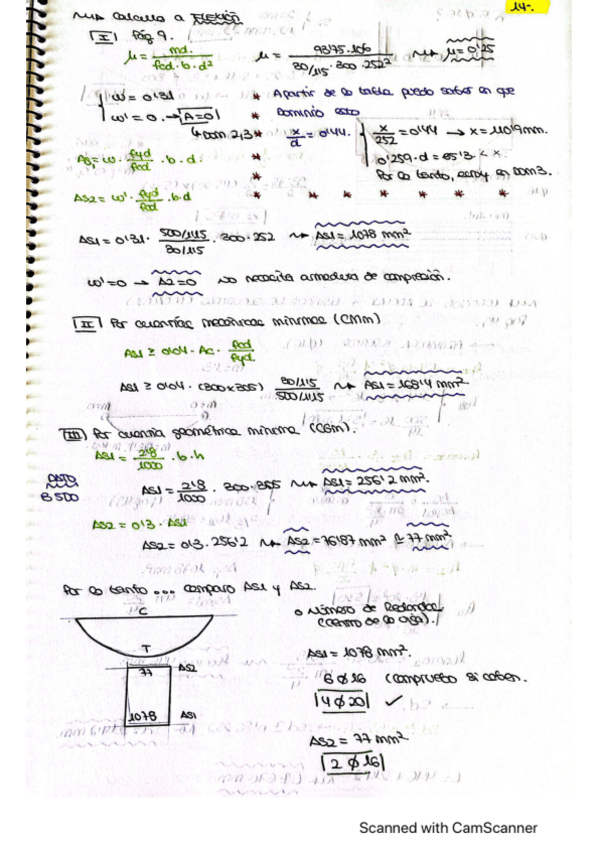 14-.
Calculo a FLEXIÓN
I Pág 9.
μ = md. / fcd · b · d²
μ = 93'75·10⁶ / 30/1'15 · 300 · 252² → μ = 0'25
w = 0'31
w' = 0. → A=0
↳ Dom 2,3
* A partir de la tabla puedo saber en que
Dominio esto
x/d = 0'44. x/252 = 0'44 → x = 110'9mm.
0'259·d = 65'3 < x.
Por lo tanto, estoy en Dom 3.
As1 = w · fyd/fcd · b · d.
AS2 = w' · fyd/fcd · b·d
* * * * * * *
AS1 = 0'31 · 500/1'15 / 30/1'15 · 300 · 252 → AS1 = 1078 mm²
w'=0 → A2=0 no necesita armadura de compresión.
II Por cuantías mecánicas mínimas (CMm)
AS1 ≥ 0'04 · Ac · fcd/fyd.
AS1 ≥ 0'04 · (300x305) 30/1'15 / 500/1'15 → AS1 = 168'4 mm².
III Por cuantía geométrica mínima (CGm).
AS1 = 2'8/1000 · b · h
DATO
B 500
AS1 = 2'8/1000 · 300·305 → AS1 = 256'2 mm².
AS2 = 0'3 · AS1
AS2 = 0'3 · 256'2 → AS2 = 76'87 mm² ≅ 77 mm².
Por lo tanto ... comparo AS1 y AS2.
C
T
77 AS2
1078 AS1
o Número de Redondos
AS1 = 1078 mm².
6 Ø 16 (compruebo si caben.
4 Ø 20 ✓
AS2 = 77 mm²
2 Ø 16
Scanned with CamScanner